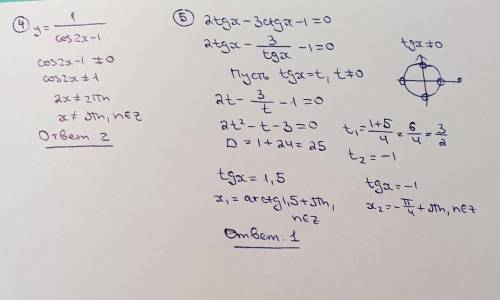 ④ y = 1/(cos2x-1)
cos2x-1 ≠ 0
cos2x ≠ 1
2x ≠ 2πn
x ≠ πn, n∈z
Ответ: 2
⑤ 2tgx - 3ctgx - 1 = 0
2tgx - 3/tgx - 1 = 0
tgx ≠ 0
Пусть tgx = t, t ≠ 0
2t - 3/t - 1 = 0
2t² - t - 3 = 0
D = 1 + 24 = 25
t₁ = (1+5)/4 = 6/4 = 3/2
t₂ = -1
tgx = 1,5
x₁ = arctg1,5 + πn,
n∈z
tgx = -1
x₂ = -π/4 + πn, n∈z
Ответ: 1